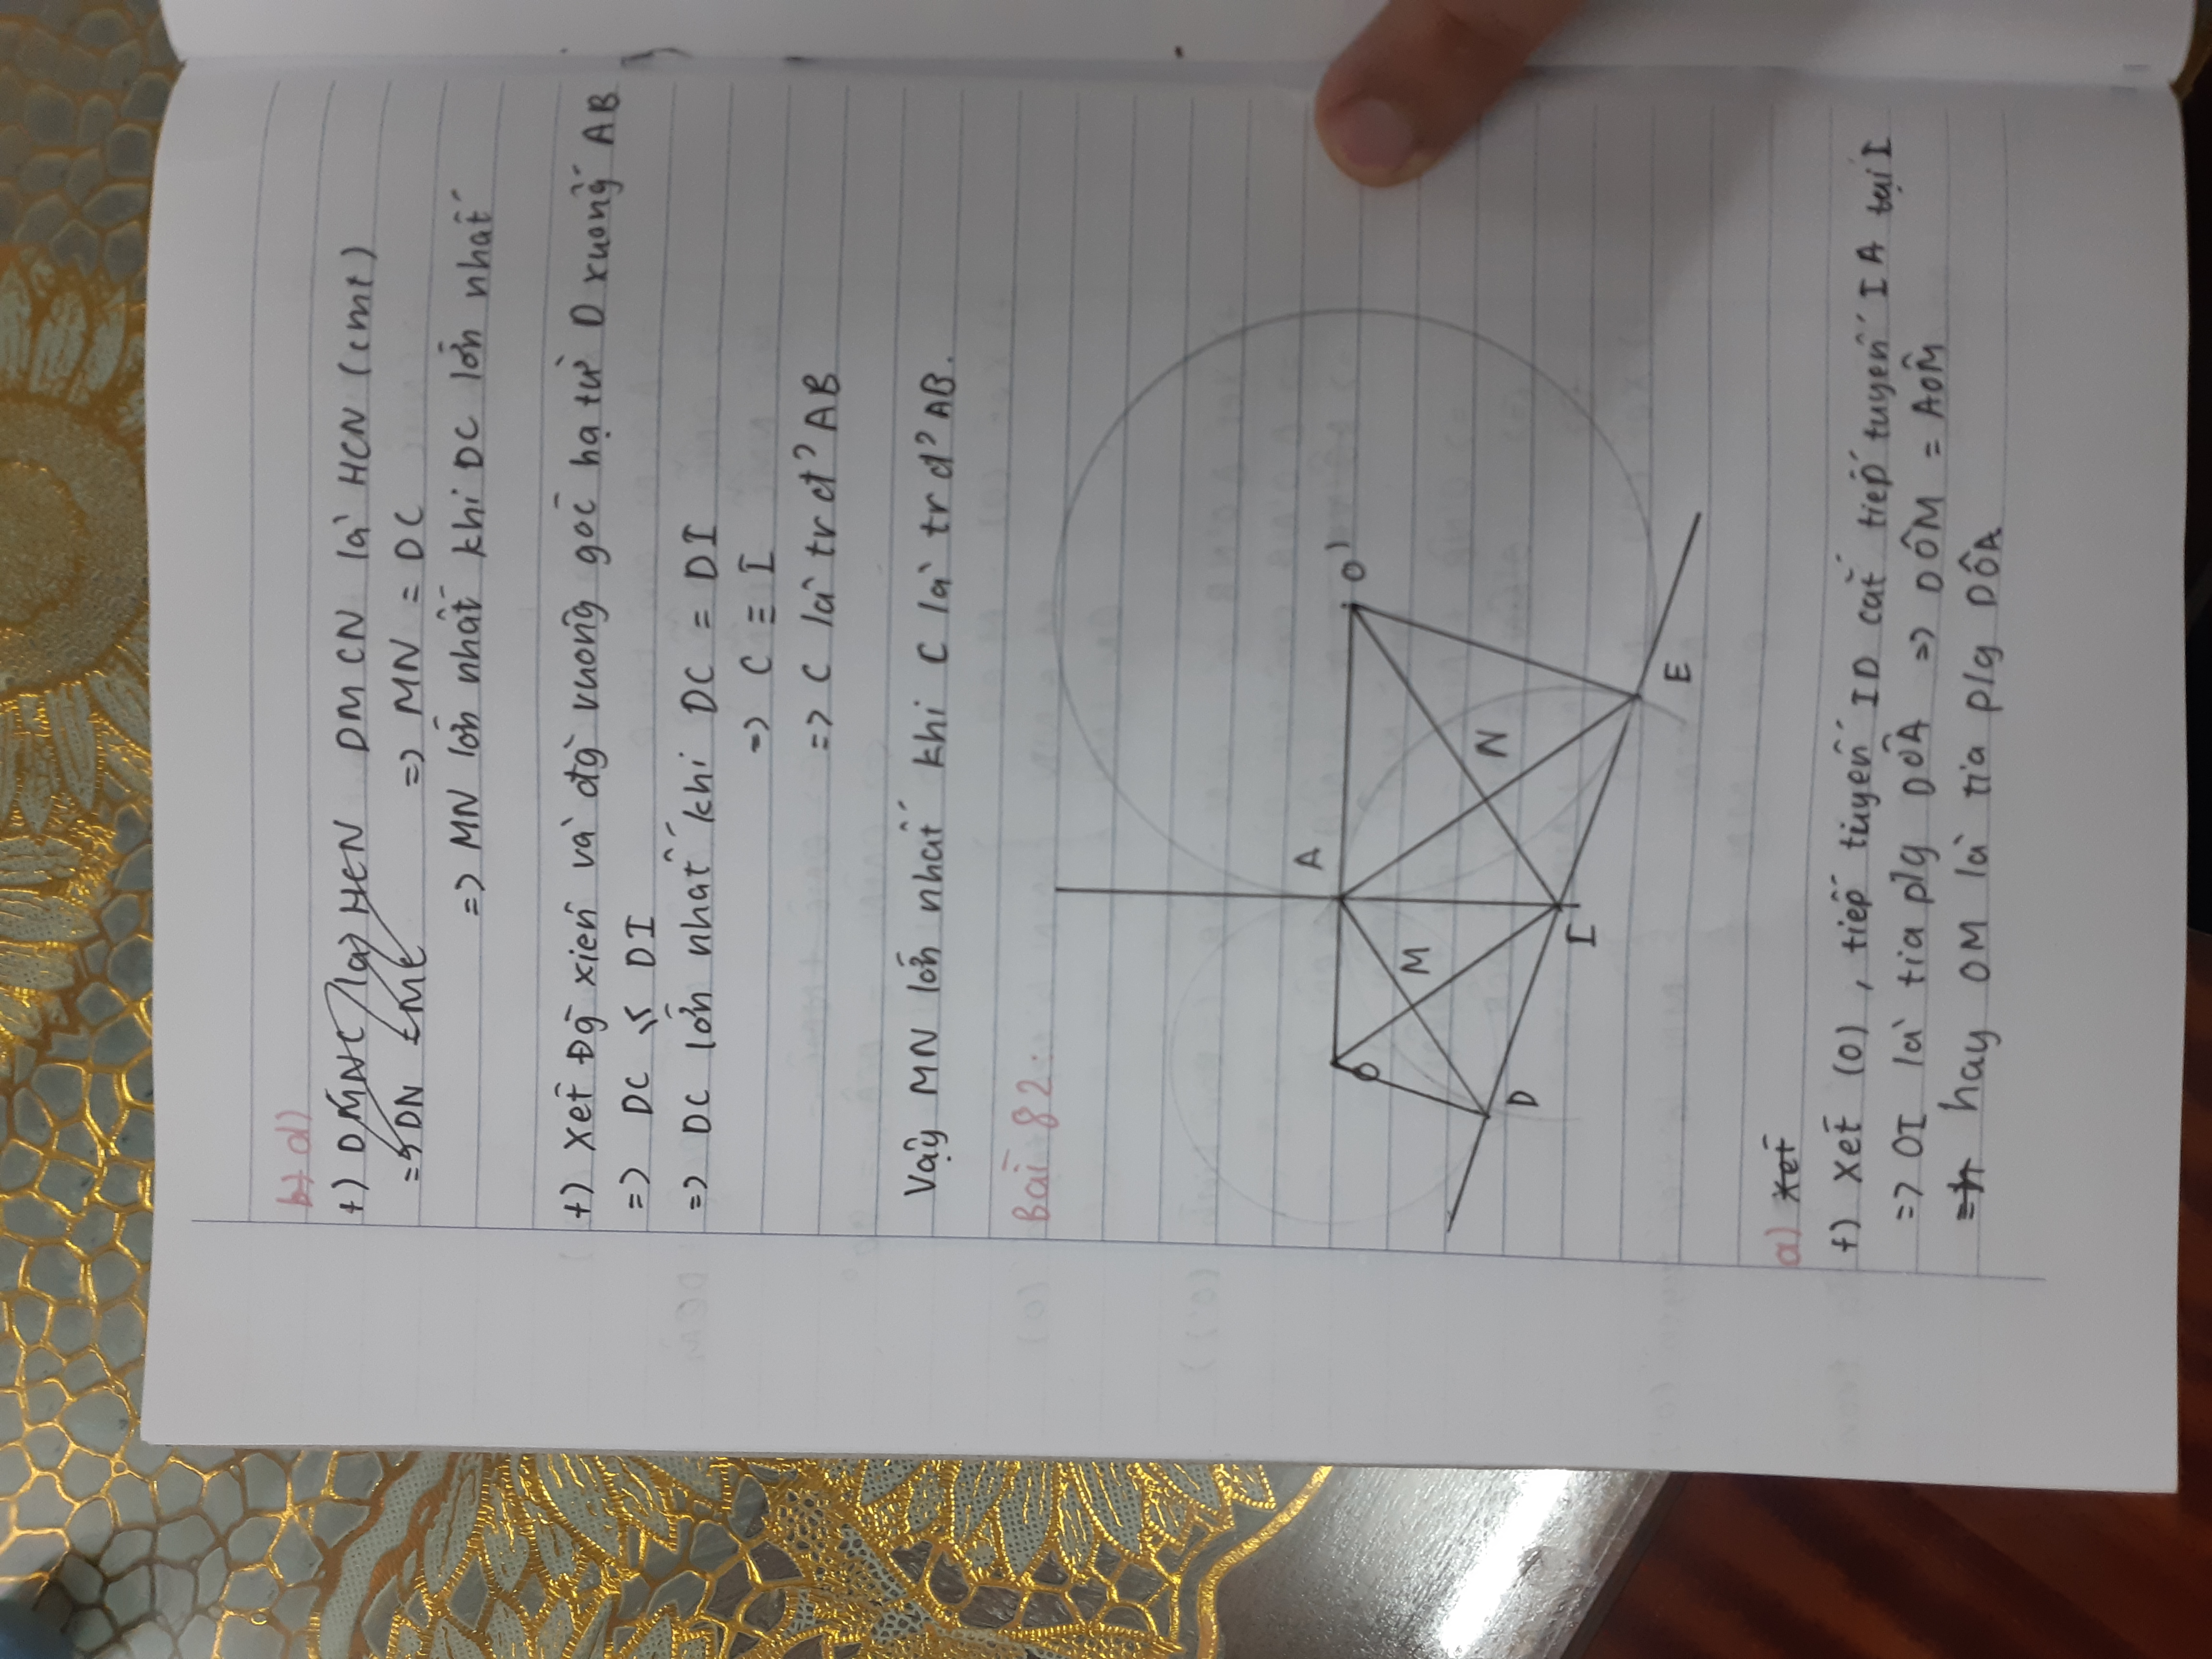 b) d)
+) DMNC là HCN DMCN là HCN (cmt)
=> DN = MC => MN = DC
=> MN lớn nhất khi DC lớn nhất
+) Xét Đg xiên và đg vuông góc hạ từ D xuống AB
=> DC ≤ DI
=> DC lớn nhất khi DC = DI
=> C ≡ I
=> C là trđ' AB
Vậy MN lớn nhất khi C là trđ' AB.
Bài 82:
A
O
O'
M
N
D
I
E
a) Xét
+) Xét (O), tiếp tuyến ID cắt tiếp tuyến IA tại I
=> OI là tia p/g DÔA => DÔM = AÔM
hay OM là tia p/g DÔA